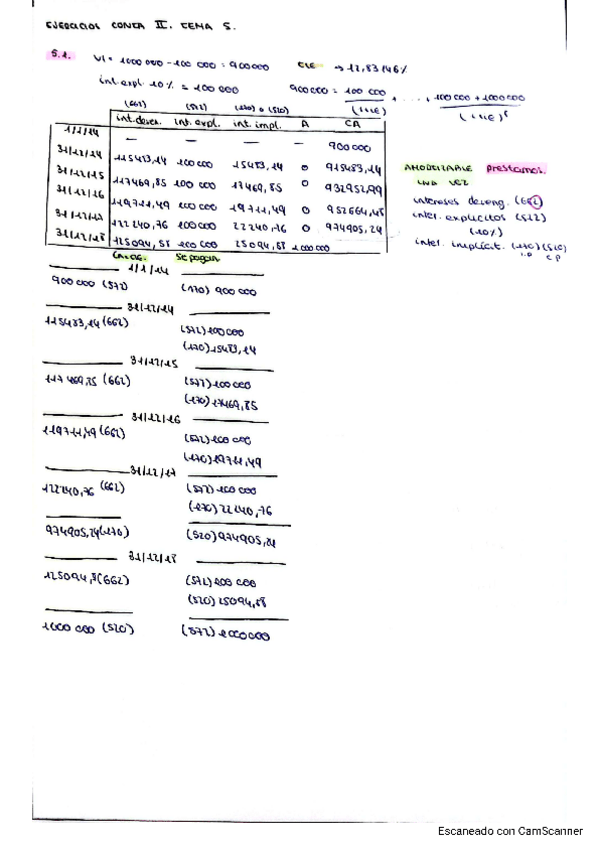 EJERCICIOS CONTA II. TEMA 5.
5.1. VI = 1000 000 - 100 000 = 900000 CIE → 12,83146%
int.expl. 10% = 100 000 900000 = 100 000 / (1+IE) + ... + 100000 + 1000000 / (1+IE)⁵
(662) (572) (170) o (520)
int.deven. int. expl. int. impl. A CA
1/1/14 — — — — 900000
31/12/14 115483,14 100000 15483,14 0 915483,14
31/12/15 117469,85 100 000 17469,85 0 932952,99
31/12/16 119711,49 100000 19711,49 0 952664,48
31/12/17 122240,76 100000 22240,76 0 974905,24
31/12/18 125094,58 100000 25094,58 1000000
se pagan
AMORTIZABLE prestamos.
UNA VEZ
intereses deveng. (662)
inter. explicitos (512)
(10%)
inter. implicit. (170)(520)
1/1/14
900 000 (572) (170) 900000
31/12/14
115483,14 (662) (572) 100000
(170) 15483,14
31/12/15
117469,85 (662) (572) 100000
(170) 17469,85
31/12/16
119711,49 (662) (572) 100 000
(170) 19711,49
31/12/17
122240,76 (662) (572) 100000
(170) 22240,76
974905,24 (170) (520) 974905,24
31/12/18
125094,58 (662) (572) 100 000
(520) 25094,58
1000 000 (520) (572) 1000000
Escaneado con CamScanner